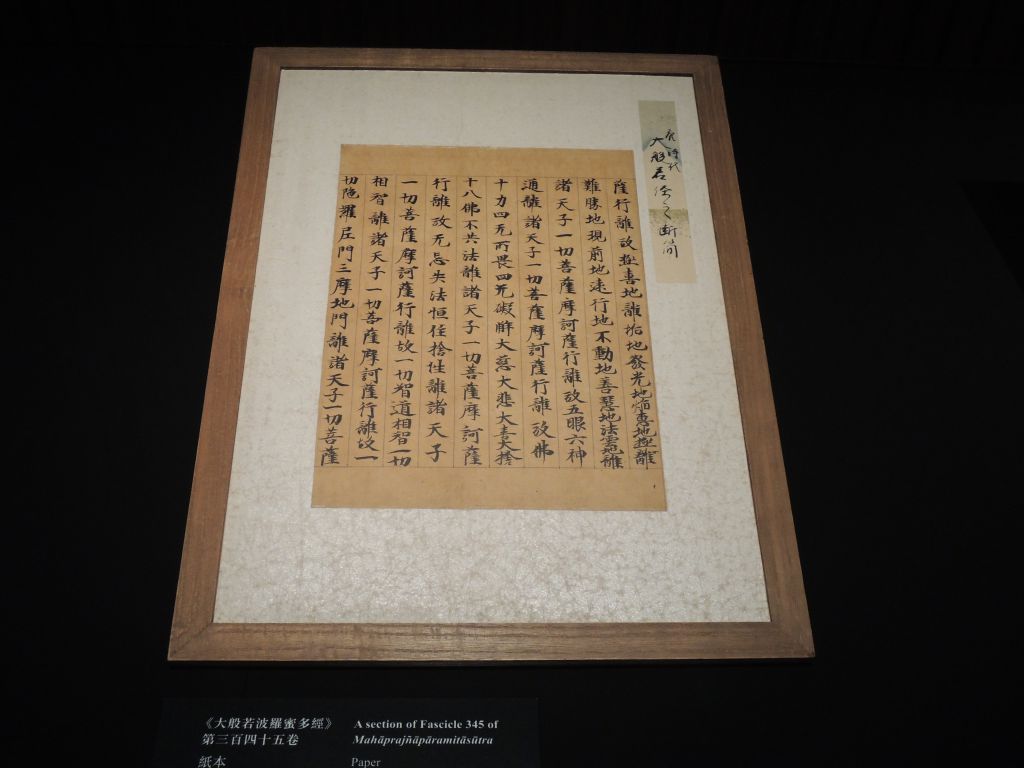 唐時代
大般若経之断簡
薩行離故極喜地離垢地發光地焰惠地極離
難勝地現前地遠行地不動地善慧地法雲地離
諸天子一切菩薩摩訶薩行離故五眼六神
通離諸天子一切菩薩摩訶薩行離故佛
十力四无所畏四无礙解大慈大悲大喜大捨
十八佛不共法離諸天子一切菩薩摩訶薩
行離故无忘失法恒住捨性離諸天子
一切菩薩摩訶薩行離故一切智道相智一切
相智離諸天子一切菩薩摩訶薩行離故一
切陁羅尼門三摩地門離諸天子一切菩薩
《大般若波羅蜜多經》
第三百四十五卷
紙本
A section of Fascicle 345 of
Mahāprajñāpāramitāsūtra
Paper